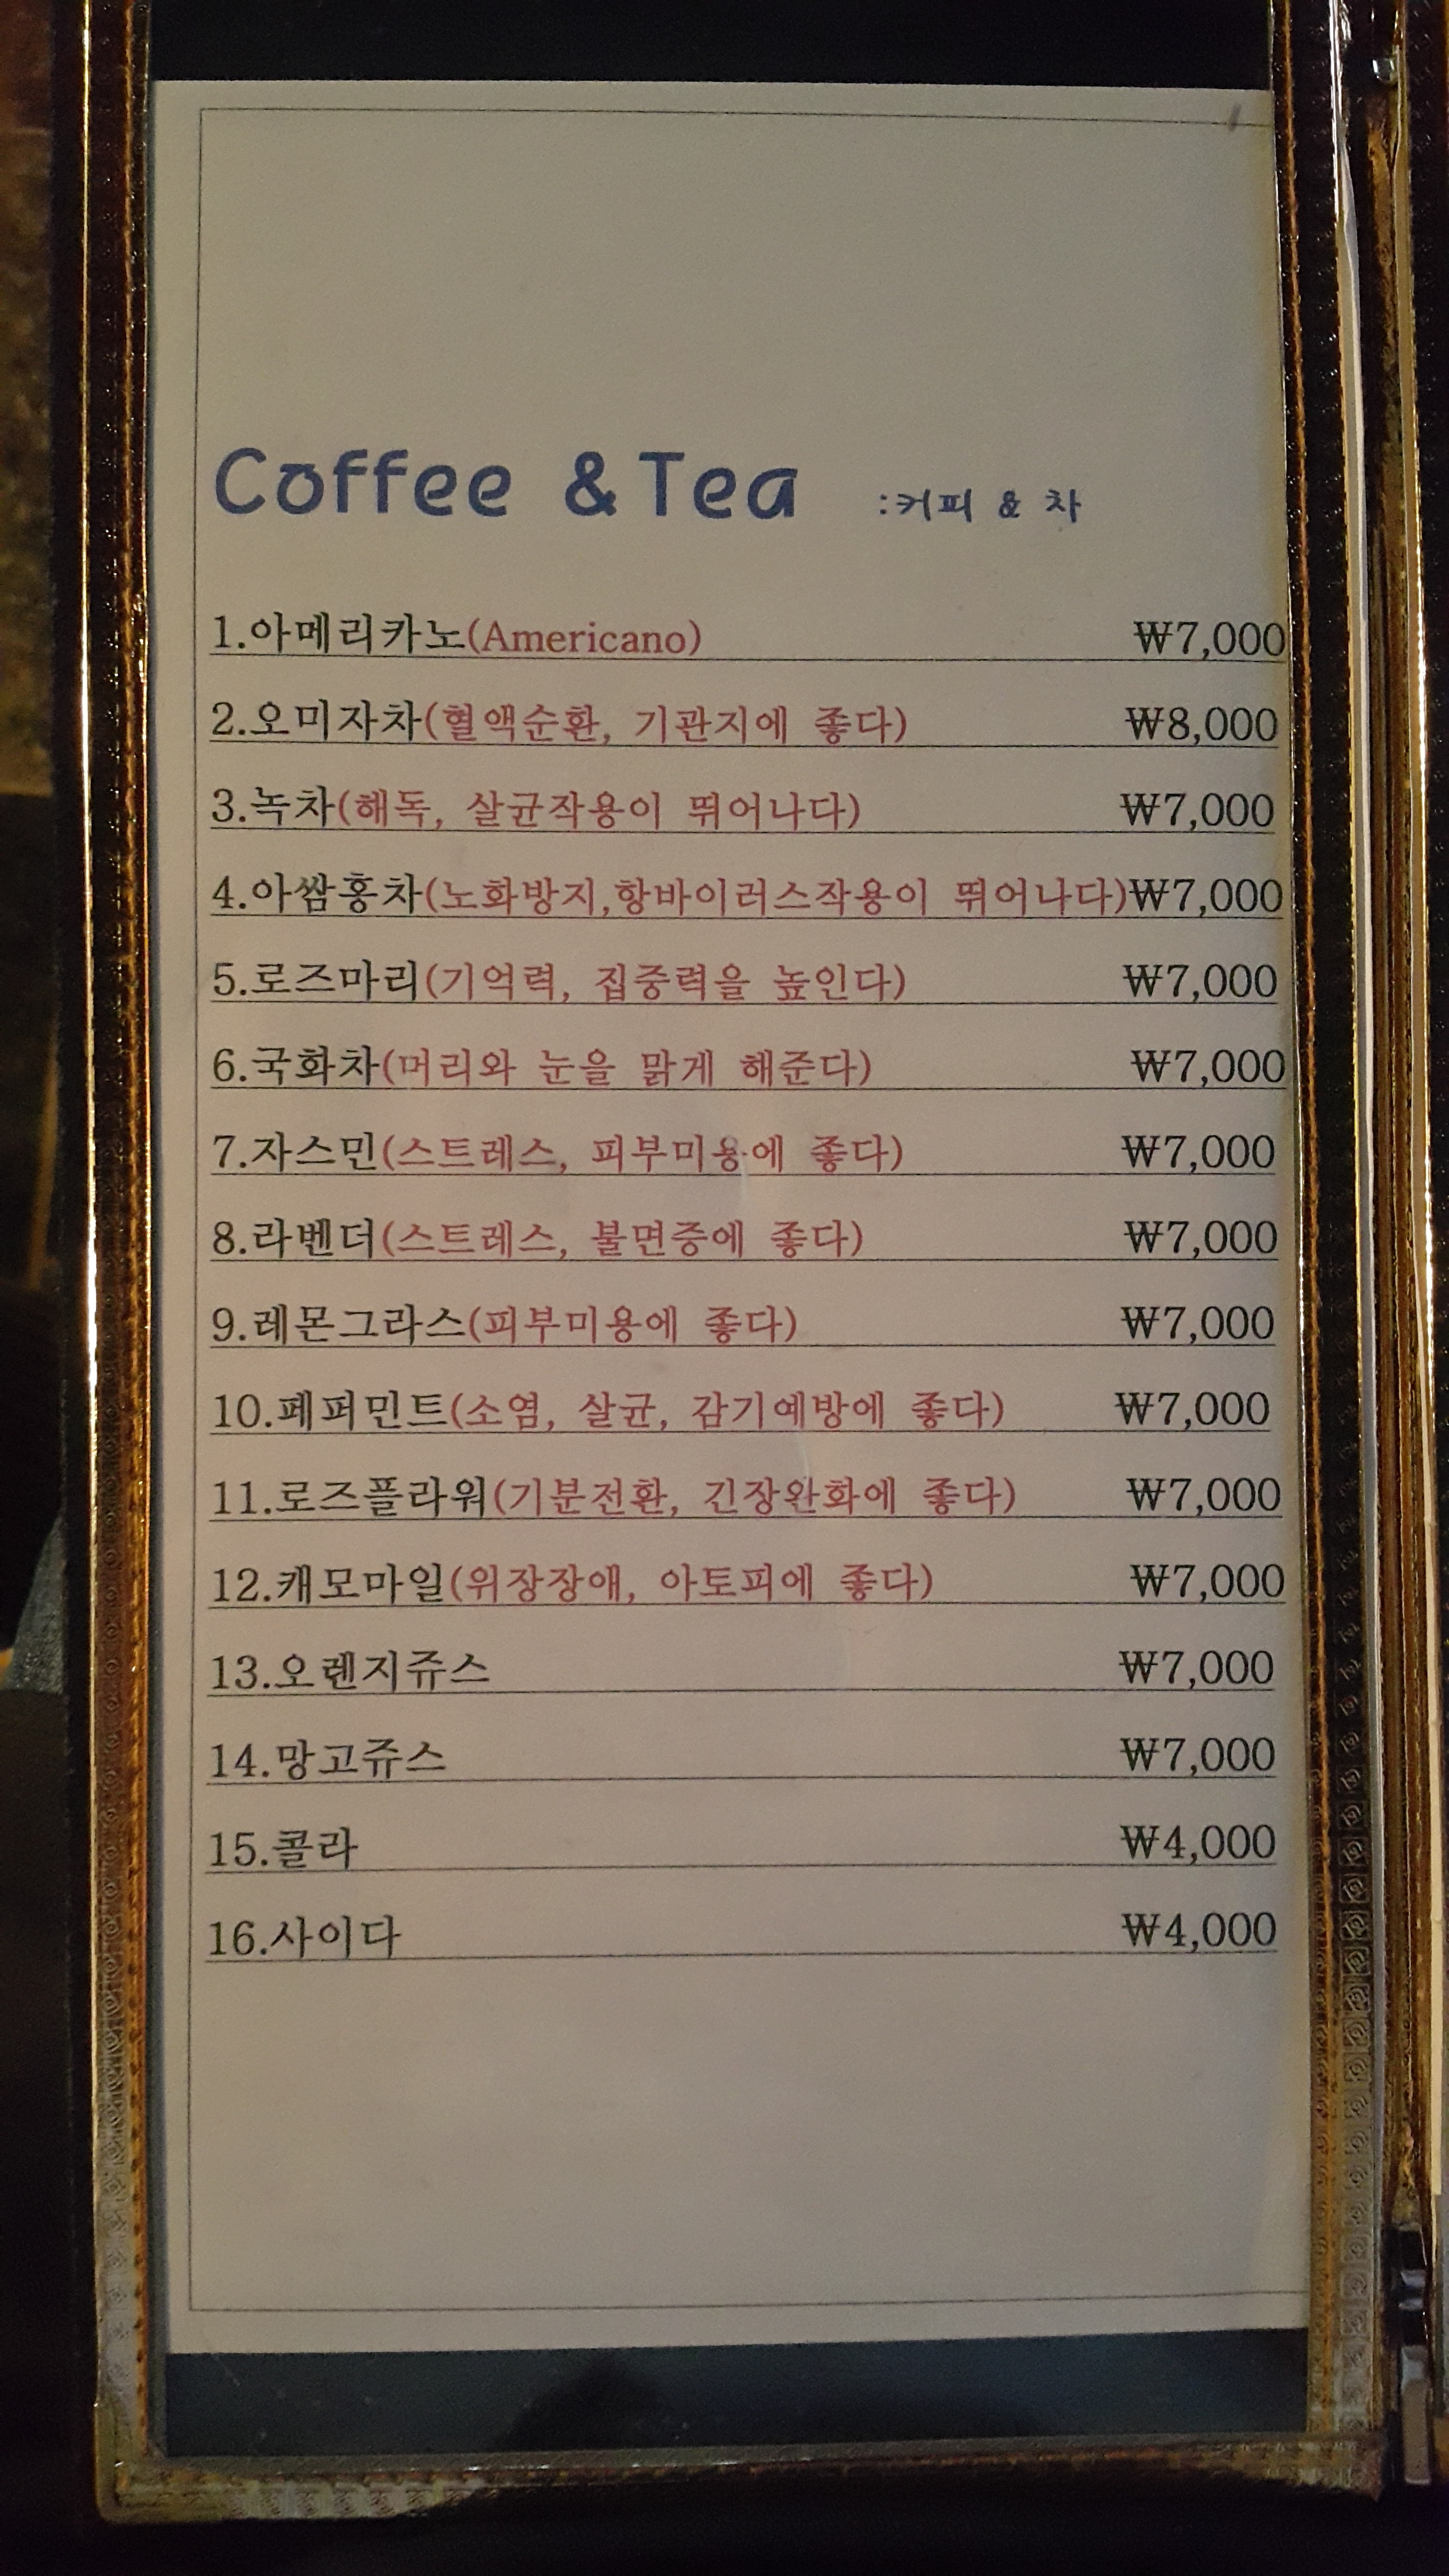 Coffee & Tea :커피 & 차
1.아메리카노(Americano) ₩7,000
2.오미자차(혈액순환, 기관지에 좋다) ₩8,000
3.녹차(해독, 살균작용이 뛰어나다) ₩7,000
4.아쌈홍차(노화방지,항바이러스작용이 뛰어나다)₩7,000
5.로즈마리(기억력, 집중력을 높인다) ₩7,000
6.국화차(머리와 눈을 맑게 해준다) ₩7,000
7.자스민(스트레스, 피부미용에 좋다) ₩7,000
8.라벤더(스트레스, 불면증에 좋다) ₩7,000
9.레몬그라스(피부미용에 좋다) ₩7,000
10.페퍼민트(소염, 살균, 감기예방에 좋다) ₩7,000
11.로즈플라워(기분전환, 긴장완화에 좋다) ₩7,000
12.캐모마일(위장장애, 아토피에 좋다) ₩7,000
13.오렌지쥬스 ₩7,000
14.망고쥬스 ₩7,000
15.콜라 ₩4,000
16.사이다 ₩4,000